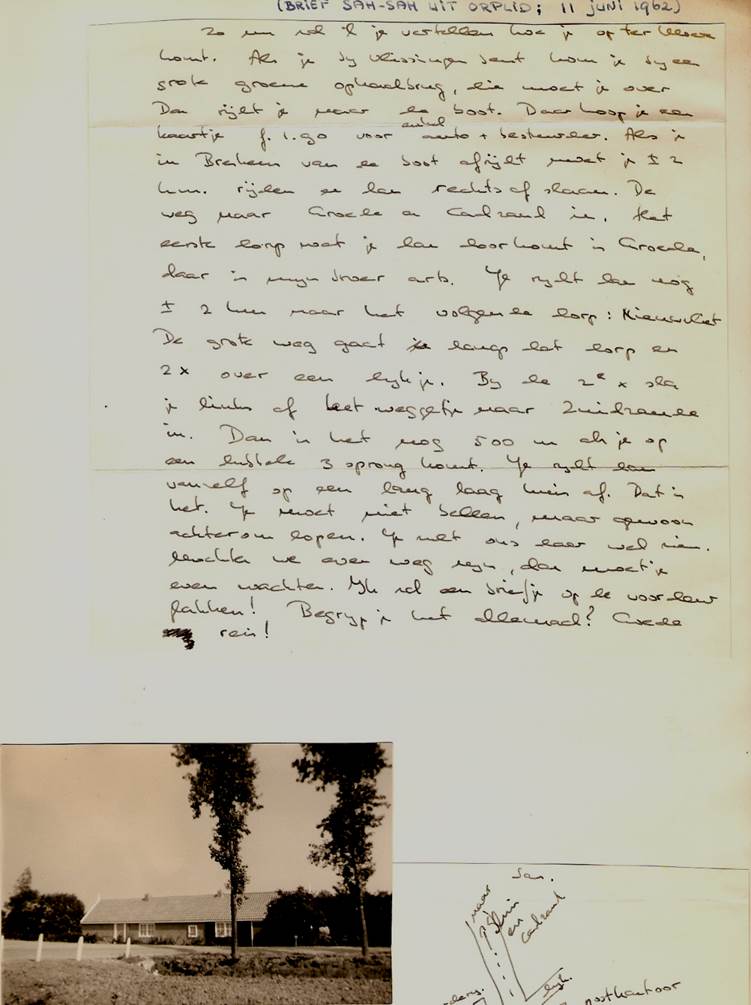 (BRIEF SAH-SAH UIT ORPLID; 11 JUNI 1962)
Zo nu zal ik je vertellen hoe je op ter
komt. Als je by Vlissingen bent kom je by een
grote groene ophaalbrug, die moet je over
Dan rijdt je naar de boot. Daar koop je een
kaartje f. 1.90 voor enkel auto + bestuurder. Als je
in Breskens van de boot afrijdt moet je ± 2
km. rijden en dan rechts af slaan. De
weg naar Groede en Cadzand in. Het
eerste dorp wat je dan doorkomt is Groede,
daar is myn broer arts. Je rydt dan nog
± 2 km naar het volgende dorp: Nieuwvliet
De grote weg gaat langs dat dorp en
2 x over een dykje. By de 2e x sla
je links af het weggetje naar Zuidzande
in. Dan is het nog 500 m als je op
een dubbele 3 sprong komt. Je rydt dan
vanzelf op een lang laag huis af. Dat is
het. Je moet niet bellen, maar gewoon
achterom lopen. Je zult ons daar wel zien.
Mochten we even weg zyn, dan moet je
even wachten. Ik zal een briefje op de voordeur
plakken! Begryp je het allemaal? Goede
reis!
San.
naar
huis
en
Cadzand
dyk.
postkantoor